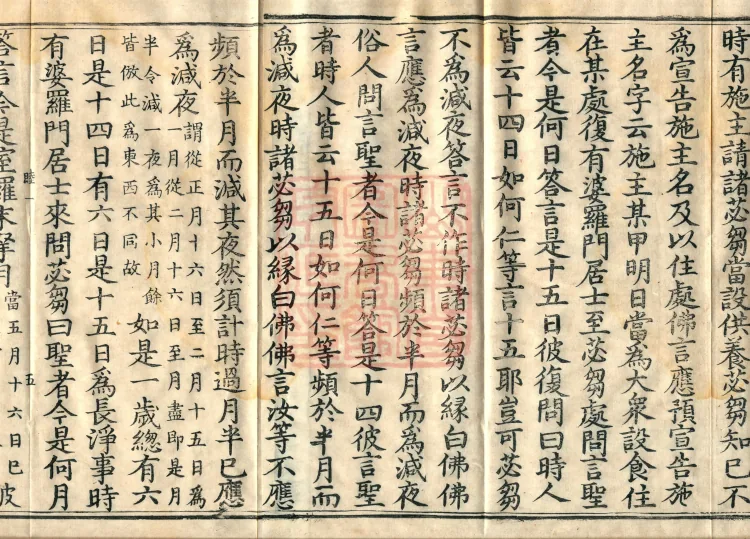 時有施主請諸苾芻當設供養苾芻知已不
為宣告施主名及以住處佛言應預宣告施
主名字云施主某甲明日當為大眾設食住
在某處復有婆羅門居士至苾芻處問言聖
者今是何日答言是十五日彼復問曰時人
皆云十四日如何仁等言十五耶豈可苾芻
不為減夜答言不作時諸苾芻以緣白佛佛
言應為減夜時諸苾芻頻於半月而為減夜
俗人問言聖者今是何日答是十四彼言聖
者時人皆云十五日如何仁等頻於半月而
為減夜時諸苾芻以緣白佛佛言汝等不應
頻於半月而減其夜然須計時過月半已應
為減夜謂從正月十六日至二月十五日為
一月從二月十六日至月盡即是月
半令減一夜為其小月餘
皆倣此為東西不同故如是一歲總有六
日是十四日有六日是十五日為長淨事時
有婆羅門居士來問苾芻曰聖者今是何月
睦一
五
答言今是室羅末拏月當五月十六日已彼